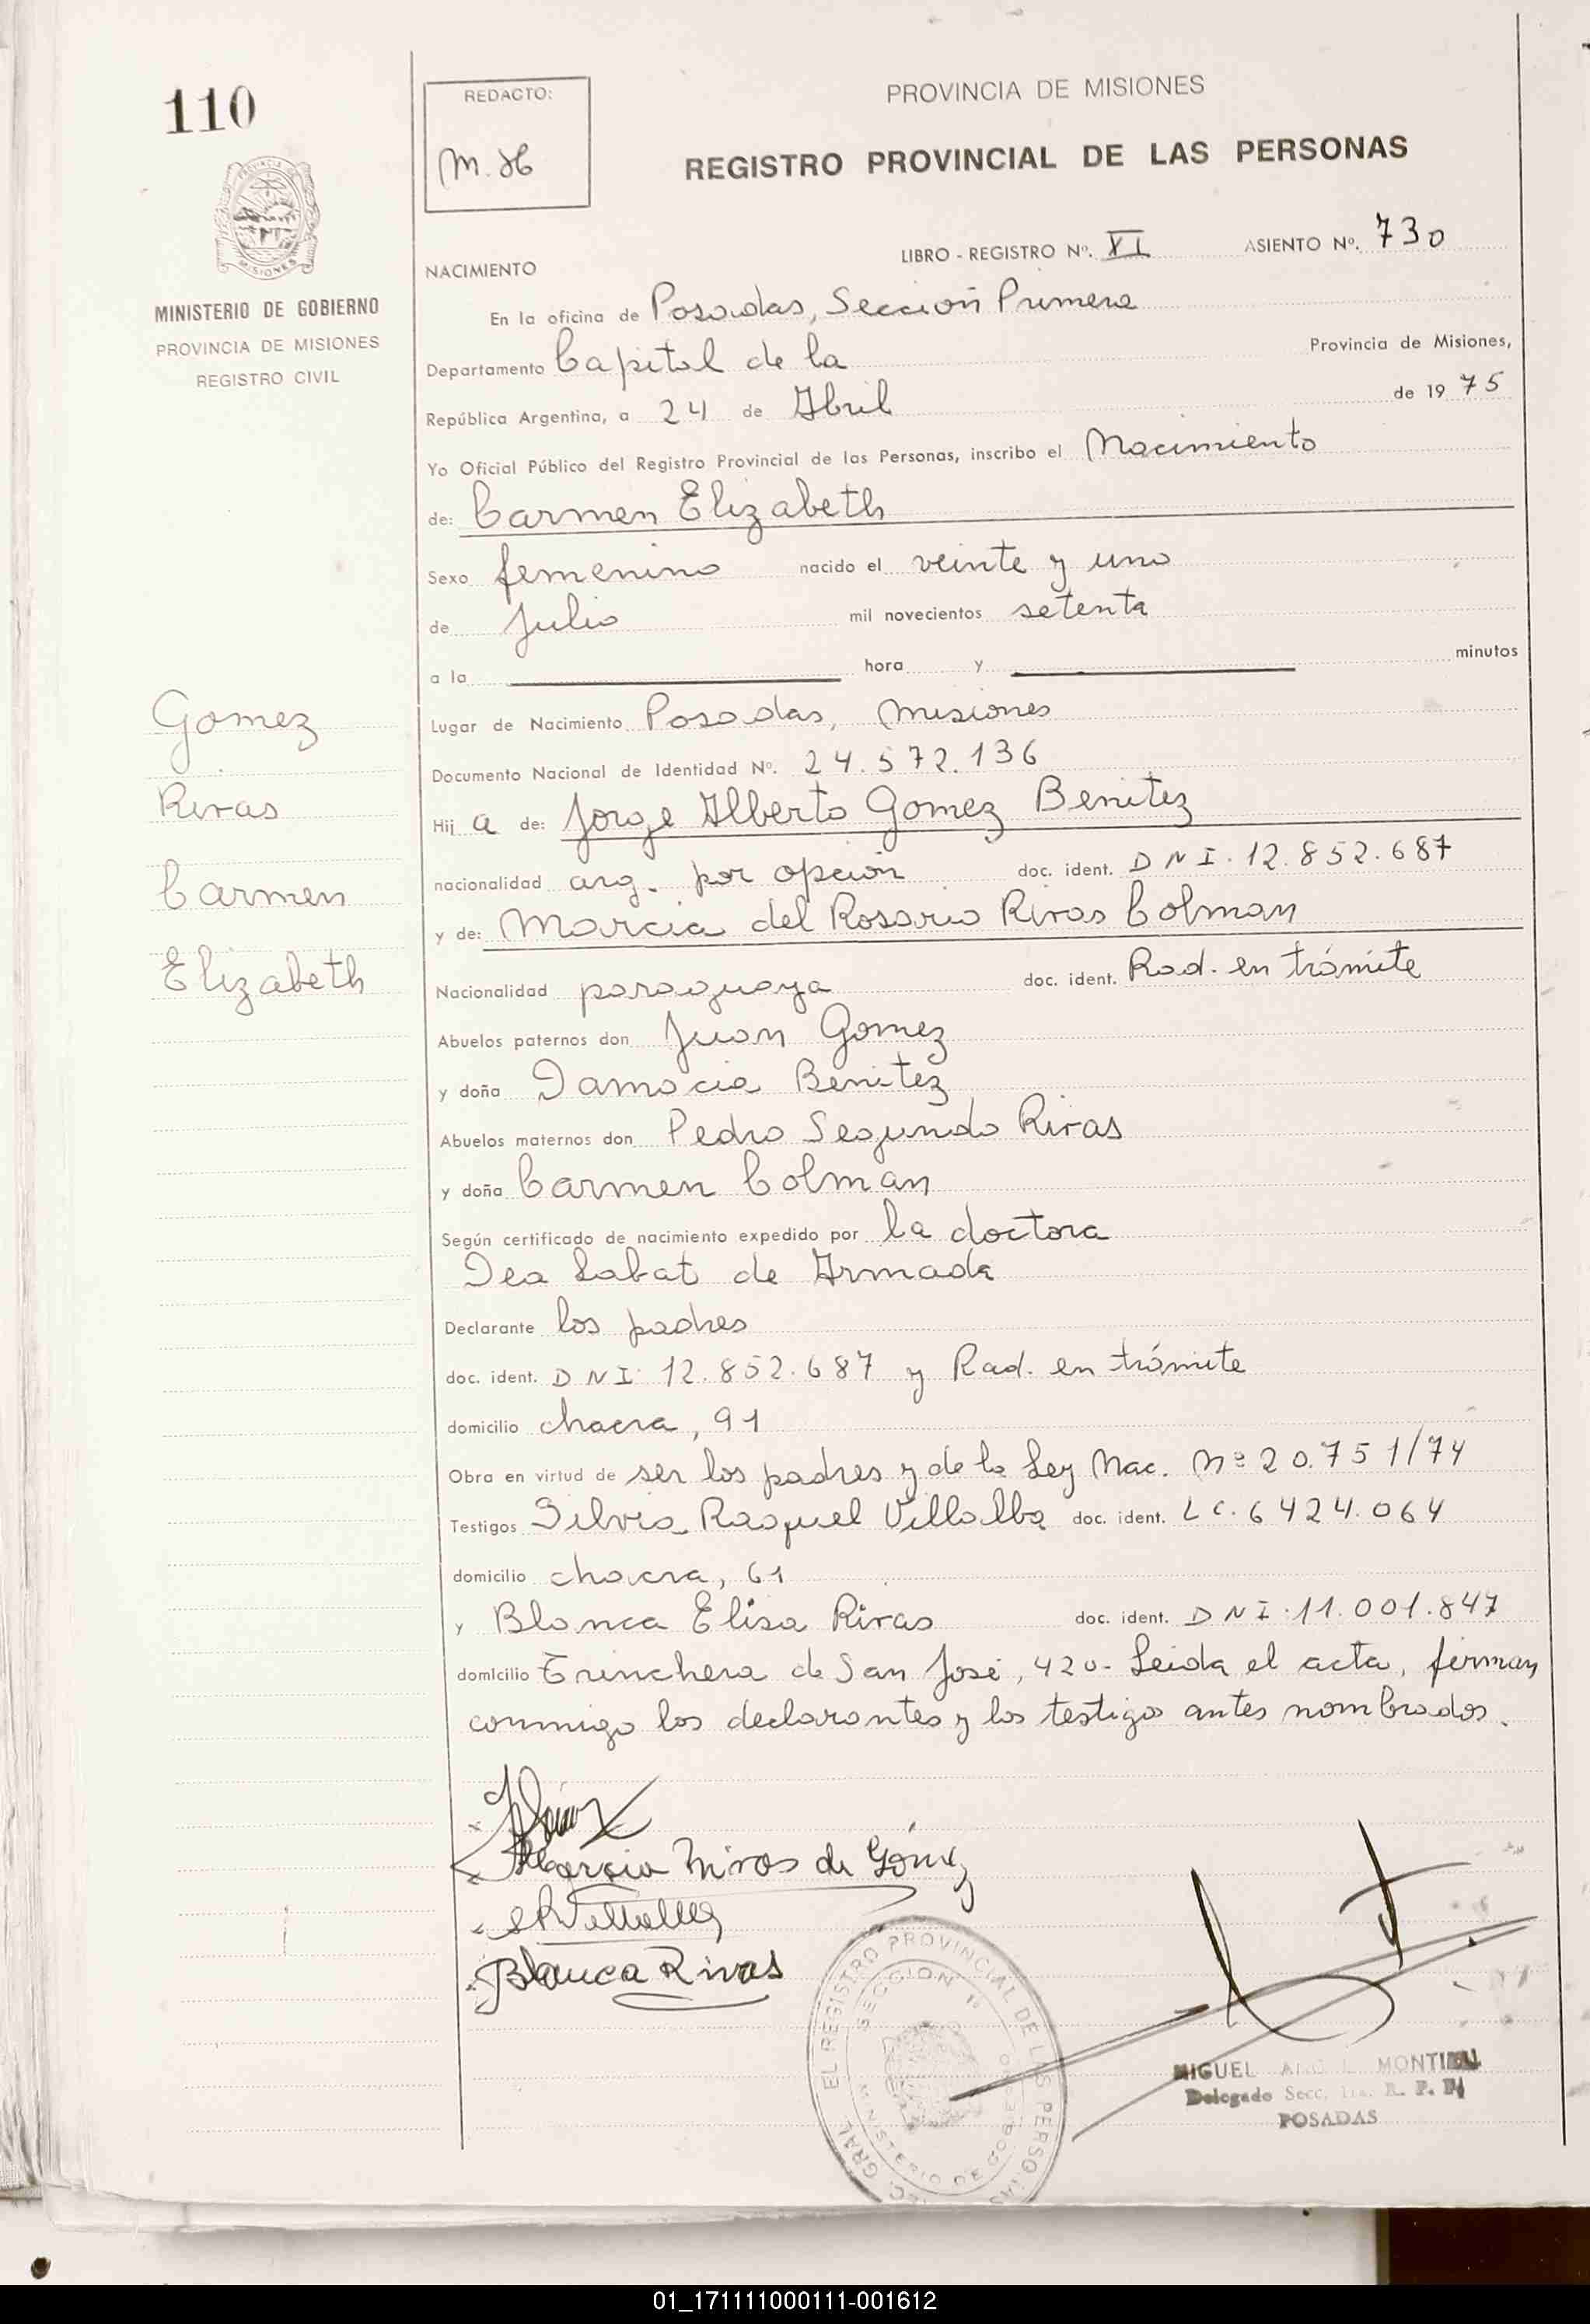 110
REDACTO:
M. H
PROVINCIA DE MISIONES
REGISTRO PROVINCIAL DE LAS PERSONAS
MISIONES
MINISTERIO DE GOBIERNO
PROVINCIA DE MISIONES
REGISTRO CIVIL
LIBRO - REGISTRO Nº. XI ASIENTO Nº. 730
NACIMIENTO
En la oficina de Posadas, Sección Primera
Departamento Capital de la Provincia de Misiones,
República Argentina, a 24 de Abril de 1975
Yo Oficial Público del Registro Provincial de las Personas, inscribo el Nacimiento
de: Carmen Elizabeth
Sexo femenino nacido el veinte y uno
de Julio mil novecientos setenta
a la hora y minutos
Gomez
Rivas
Carmen
Elizabeth
Lugar de Nacimiento Posadas, Misiones
Documento Nacional de Identidad Nº. 24.572.136
Hij a de: Jorge Alberto Gomez Benitez
nacionalidad arg. por opción doc. ident. DNI. 12.852.687
y de: Marcia del Rosario Rivas Colman
Nacionalidad paraguaya doc. ident. Rad. en trámite
Abuelos paternos don Juan Gomez
y doña Damacia Benitez
Abuelos maternos don Pedro Segundo Rivas
y doña Carmen Colman
Según certificado de nacimiento expedido por la doctora
Dea Sabat de Armada
Declarante los padres
doc. ident. DNI 12.852.687 y Rad. en trámite
domicilio chacra, 91
Obra en virtud de ser los padres y de la Ley Nac. Nº 20.751/74
Testigos Silvia Raquel Villalba doc. ident. LC. 6424.064
domicilio chacra, 61
y Blanca Elisa Rivas doc. ident. DNI. 11.001.847
domicilio Trinchera de San José, 420- Leida el acta, firman
conmigo los declarantes y los testigos antes nombrados.
Marcia Rivas de Gómez
SRVillalba
Blanca Rivas
GRAL EL REGISTRO PROVINCIAL DE LAS PERSONAS
SECCION 1ª
MINISTERIO DE GOBIERNO
MIGUEL MONTIEL
Delegado Secc. 1ra. R. P. P.
POSADAS
01_171111000111-001612